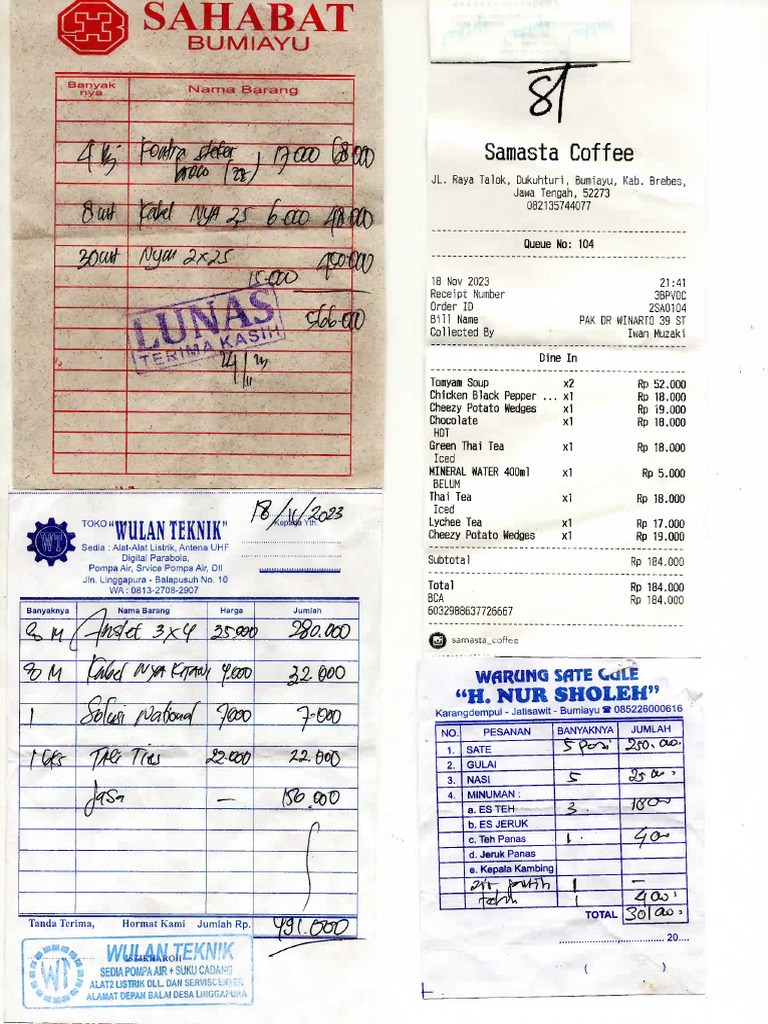 SAHABAT
BUMIAYU
Banyak nya Nama Barang
4 17.000 68.000
(22)
8 Kabel NYA 2,5 6.000 48.000
30 Nym 2x25
15.000 450.000
566.000
LUNAS
TERIMA KASIH
24/11 23
TOKO "WULAN TEKNIK"
Sedia : Alat-Alat Listrik, Antena UHF
Digital Parabola,
Pompa Air, Srvice Pompa Air, Dll
Jln. Linggapura - Balapusuh No. 10
WA : 0813-2708-2907
18/11/2023
Kepada Yth.
Banyaknya Nama Barang Harga Jumlah
8 M 3x4 35.000 280.000
8 M Kabel NYA 4.000 32.000
1 Solusi National 7000 7.000
1 Tali Ties 22.000 22.000
Jasa — 150.000
Tanda Terima, Hormat Kami Jumlah Rp. 491.000
ISTIKMAROH
WT
WULAN TEKNIK
SEDIA POMPA AIR + SUKU CADANG
ALAT2 LISTRIK DLL. DAN SERVISCENTER
ALAMAT DEPAN BALAI DESA LINGGAPURA
Samasta Coffee
JL. Raya Talok, Dukuhturi, Bumiayu, Kab. Brebes,
Jawa Tengah, 52273
082135744077
Queue No: 104
18 Nov 2023 21:41
Receipt Number 3BPVOC
Order ID 2SA0104
Bill Name PAK DR WINARTO 39 ST
Collected By Iwan Muzaki
Dine In
Tomyam Soup x2 Rp 52.000
Chicken Black Pepper ... x1 Rp 18.000
Cheezy Potato Wedges x1 Rp 19.000
Chocolate x1 Rp 18.000
HOT
Green Thai Tea x1 Rp 18.000
Iced
MINERAL WATER 400ml x1 Rp 5.000
BELUM
Thai Tea x1 Rp 18.000
Iced
Lychee Tea x1 Rp 17.000
Cheezy Potato Wedges x1 Rp 19.000
Subtotal Rp 184.000
Total Rp 184.000
BCA Rp 184.000
6032988637726667
samasta_coffee
WARUNG SATE GULE
"H. NUR SHOLEH"
Karangdempul - Jatisawit - Bumiayu ☎ 085226000616
NO. PESANAN BANYAKNYA JUMLAH
1. SATE 5 porsi 250.000
2. GULAI
3. NASI 5 25000
4. MINUMAN :
a. ES TEH 3
b. ES JERUK
c. Teh Panas 1
d. Jeruk Panas
e. Kepala Kambing
air putih 1 —
1
TOTAL
20....
( )